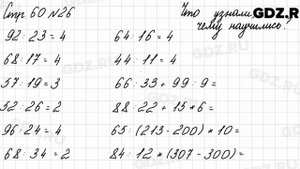 Стр. 60 № 26
Что узнали,
чему научились?
GDZ.R
92 : 23 = 4
68 : 17 = 4
57 : 19 = 3
52 : 26 = 2
96 : 24 = 4
68 : 34 = 2
64 : 16 = 4
44 : 11 = 4
66 : 33 + 99 : 9 =
88 : 22 + 15 * 6 =
65 : (213 - 200) * 10 =
84 : 12 * (307 - 300) =